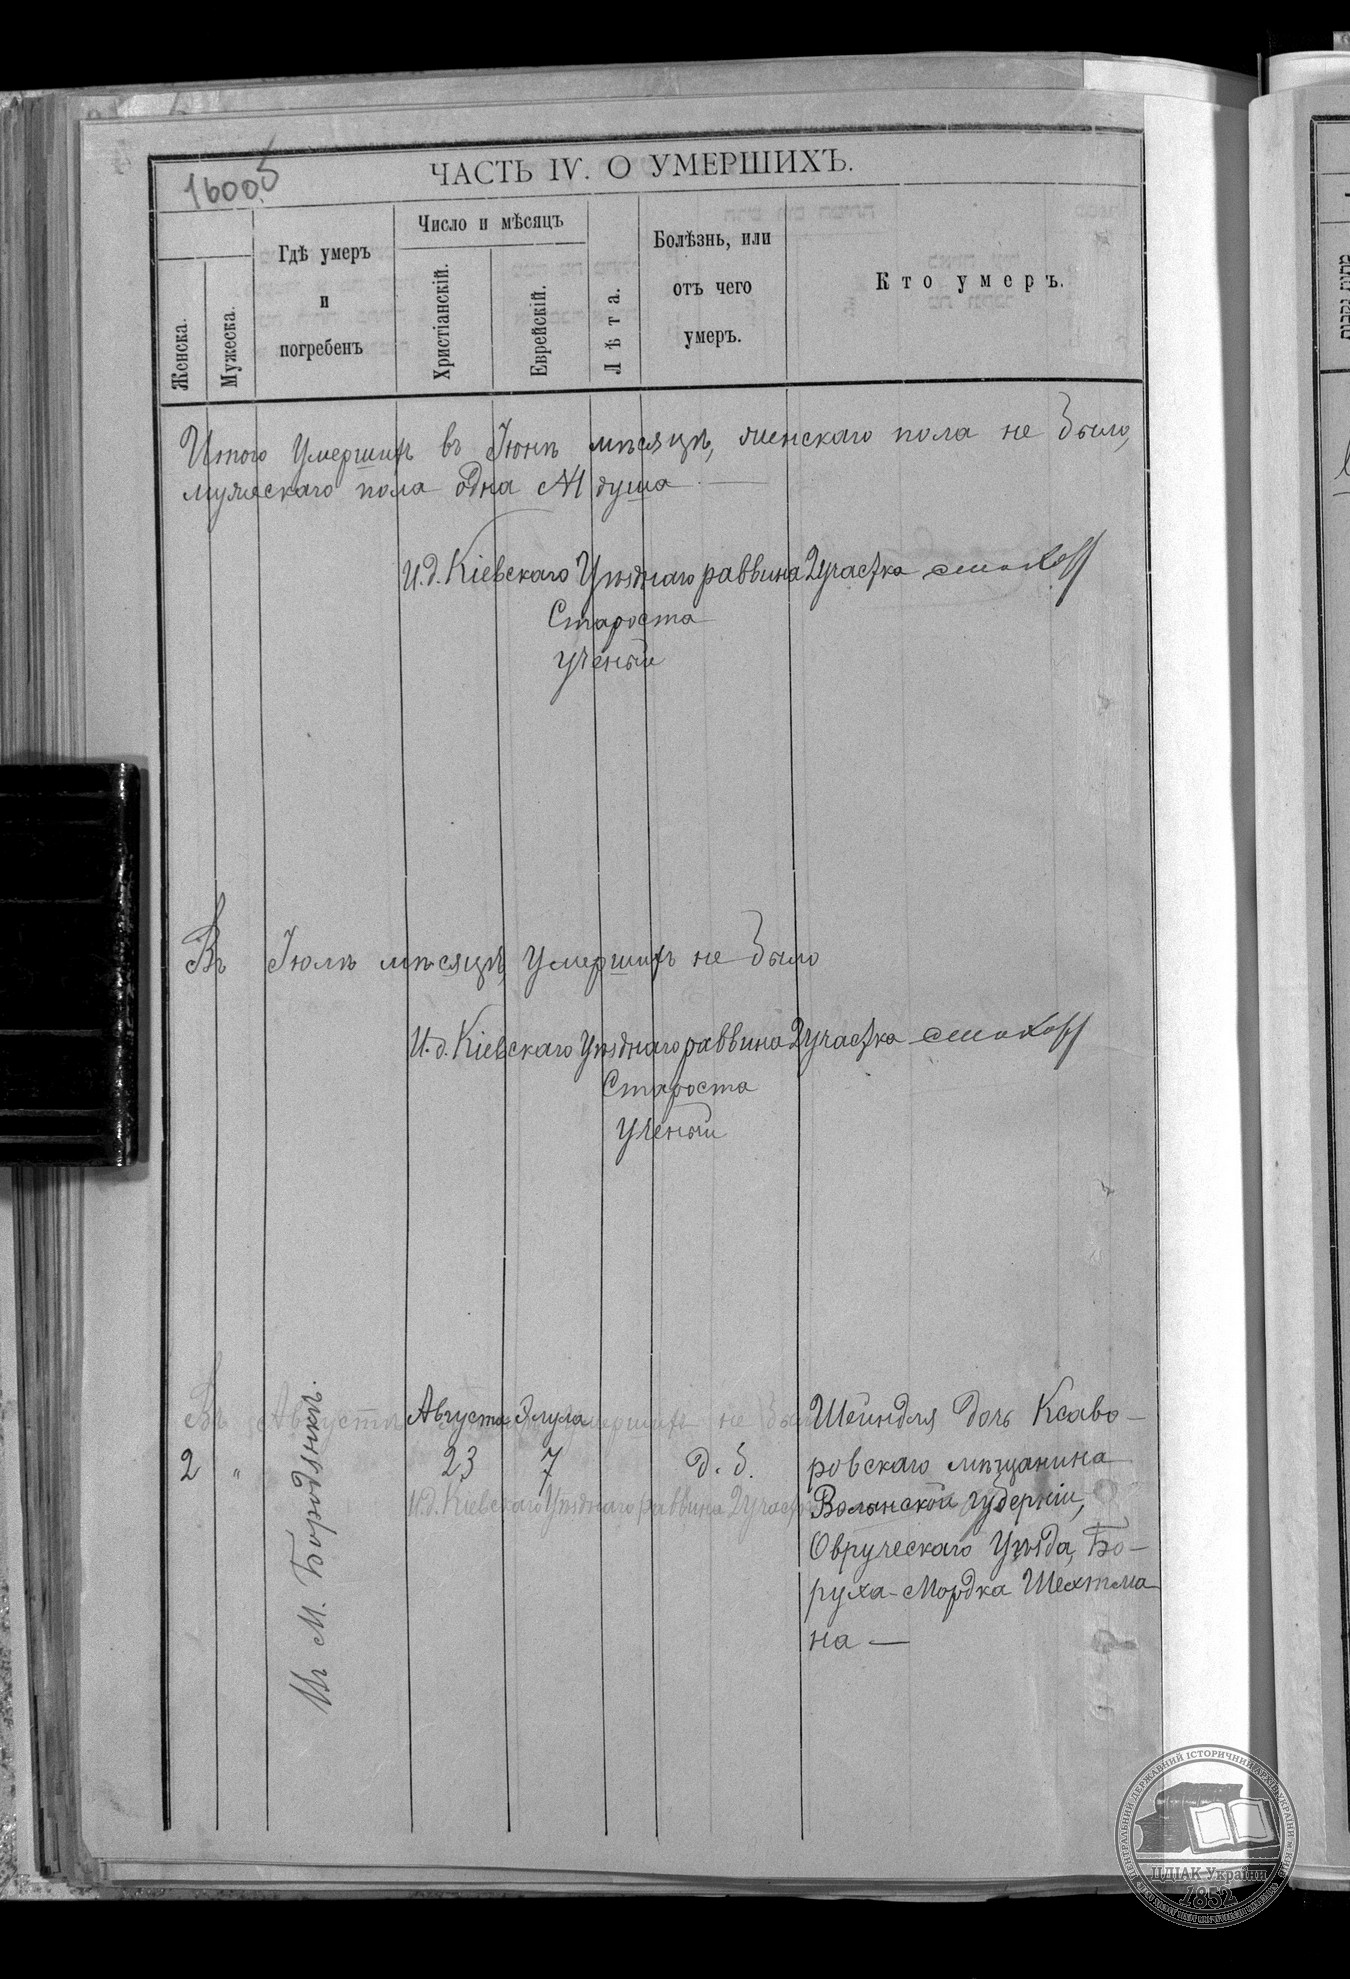 1600об
ЧАСТЬ IV. О УМЕРШИХЪ.
Женска.
Мужеска.
Гдѣ умеръ
и
погребенъ
Число и мѣсяцъ
Христіанскій.
Еврейскій.
Лѣта.
Болѣзнь, или
отъ чего
умеръ.
Кто умеръ.
Итого умершихъ въ Іюнѣ мѣсяцѣ, женскаго пола не было,
мужескаго пола одна №1 душа
И.д. Кіевскаго Уѣзднаго раввина 2 участка
Староста
Ученый
Въ Іюлѣ мѣсяцѣ умершихъ не было
И.д. Кіевскаго Уѣзднаго раввина 2 участка
Староста
Ученый
Въ Августѣ умершихъ не было
И.д. Кіевскаго Уѣзднаго раввина 2 участка
2
"
Въ М. Бородянкѣ.
Августа
23
Элула
7
д. б.
Шейндля дочь Ксаво-
ровскаго мѣщанина
Волынской губерніи,
Овруческаго Уѣзда, Бо-
руха-Мордка Шехтма
на —
ЦЕНТРАЛЬНИЙ ДЕРЖАВНИЙ ІСТОРИЧНИЙ АРХІВ УКРАЇНИ м КИЇВ
ЦДІАК України
1852